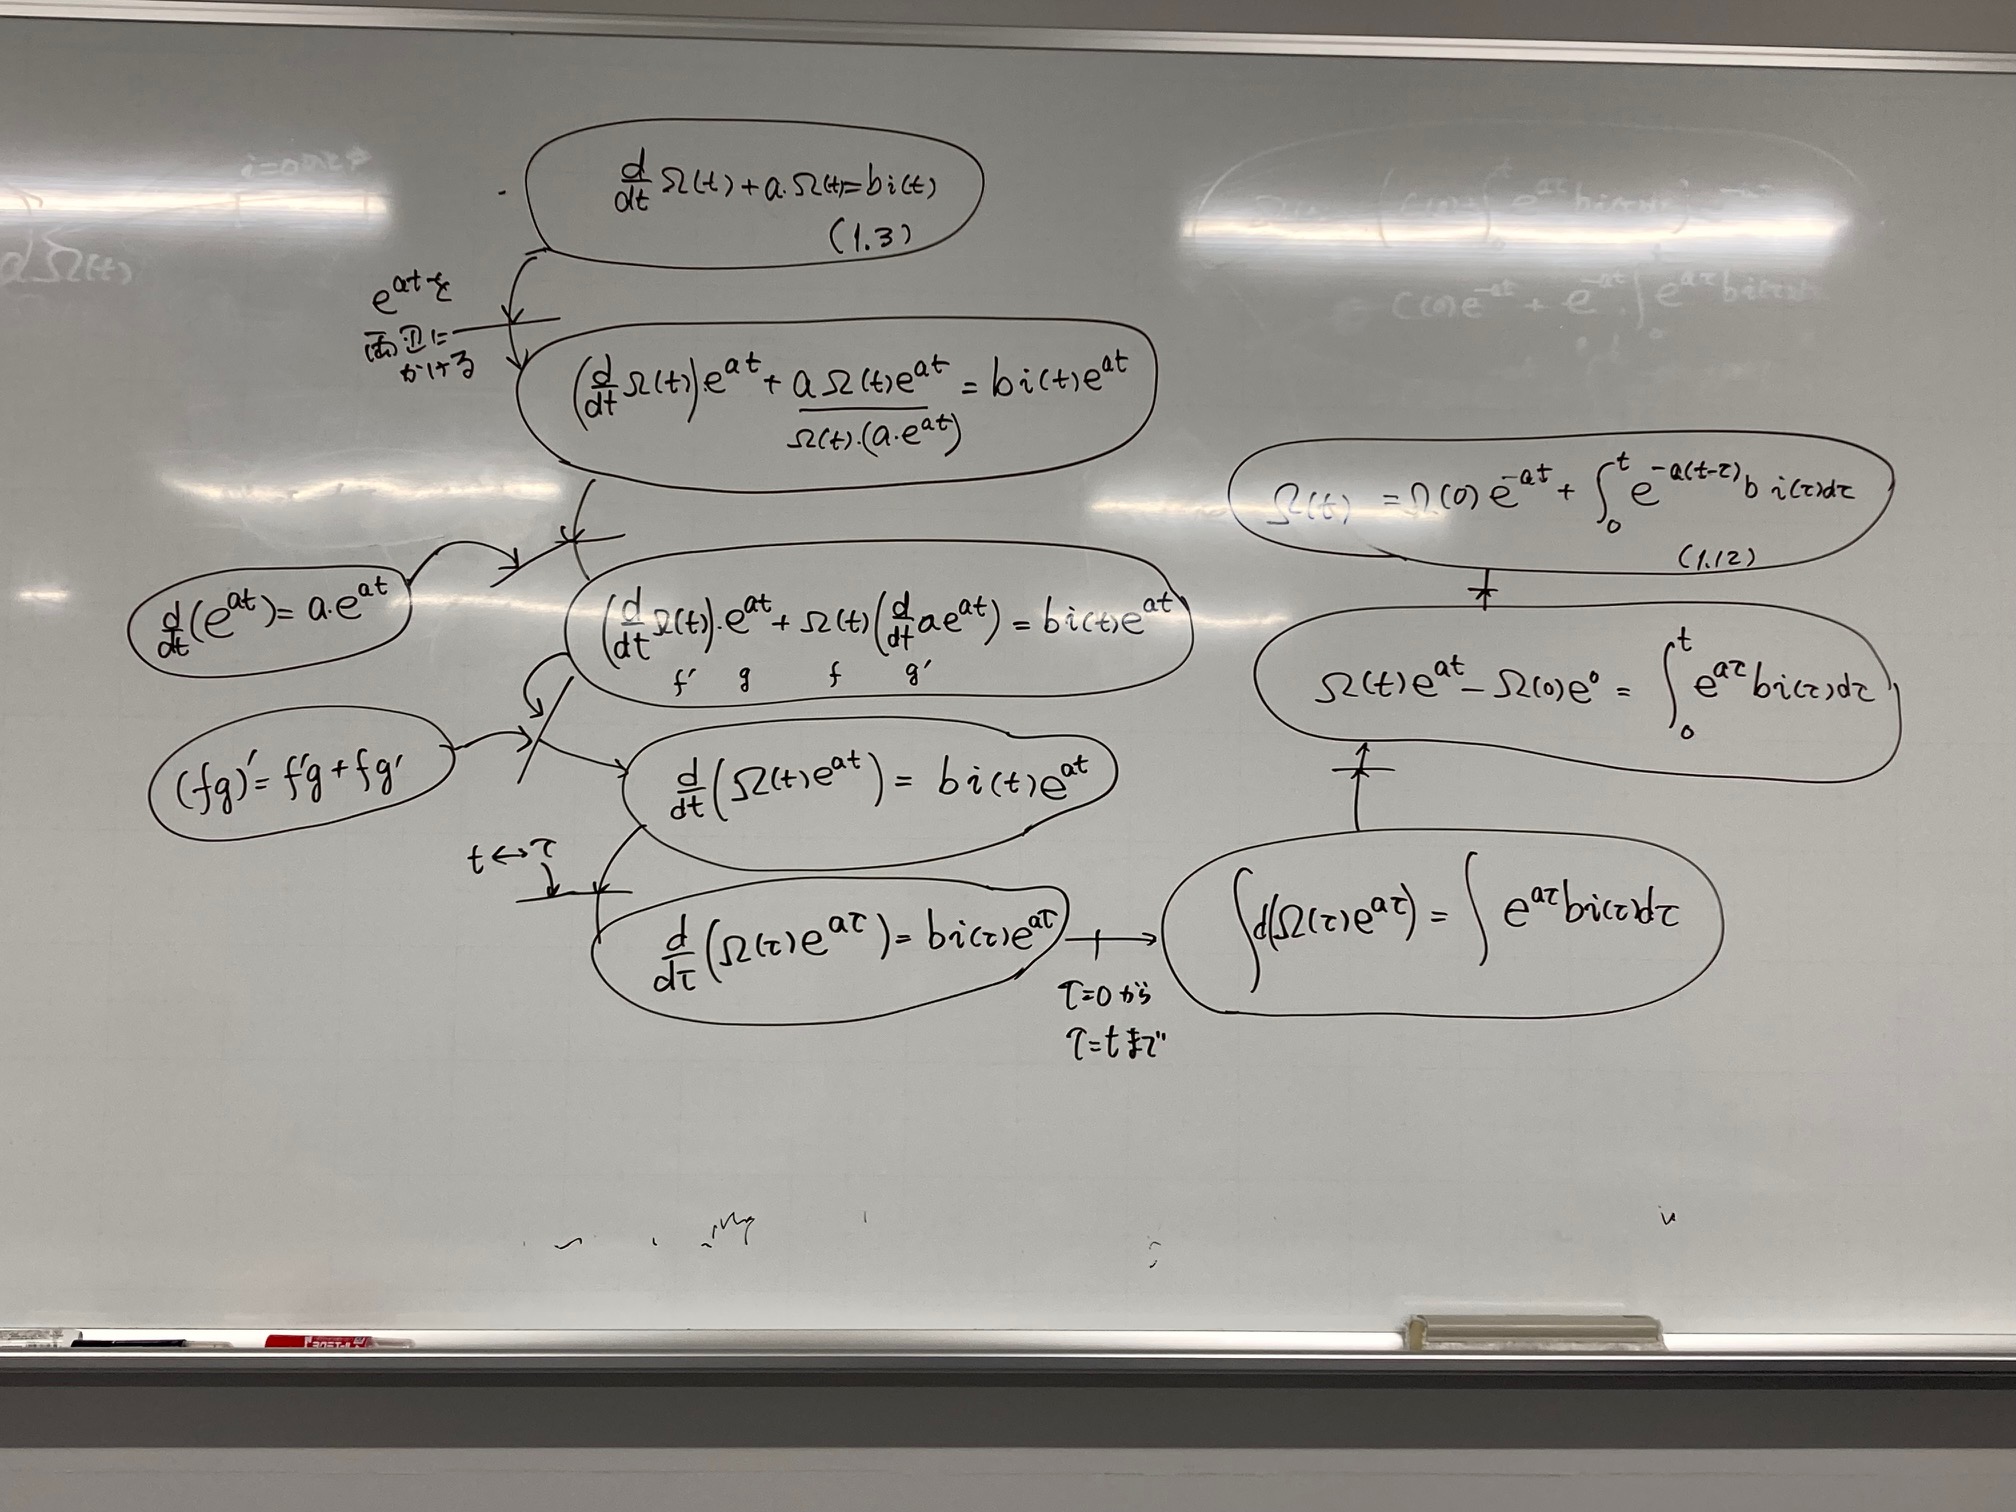 d/dt Ω(t) + a·Ω(t) = b i(t)
(1.3)
e^{at}を
両辺に
かける
(d/dt Ω(t))·e^{at} + a Ω(t)e^{at} = b i(t)e^{at}
Ω(t)·(a·e^{at})
d/dt(e^{at}) = a·e^{at}
(d/dt Ω(t))·e^{at} + Ω(t)(d/dt ae^{at}) = b i(t)e^{at}
f' g f g'
(fg)' = f'g + fg'
d/dt(Ω(t)e^{at}) = b i(t)e^{at}
t↔τ
d/dτ(Ω(τ)e^{aτ}) = b i(τ)e^{aτ}
τ=0から
τ=tまで
∫d(Ω(τ)e^{aτ}) = ∫ e^{aτ} b i(τ)dτ
Ω(t)e^{at} - Ω(0)e^0 = ∫_0^t e^{aτ} b i(τ)dτ
Ω(t) = Ω(0)e^{-at} + ∫_0^t e^{-a(t-τ)} b i(τ)dτ
(1.12)